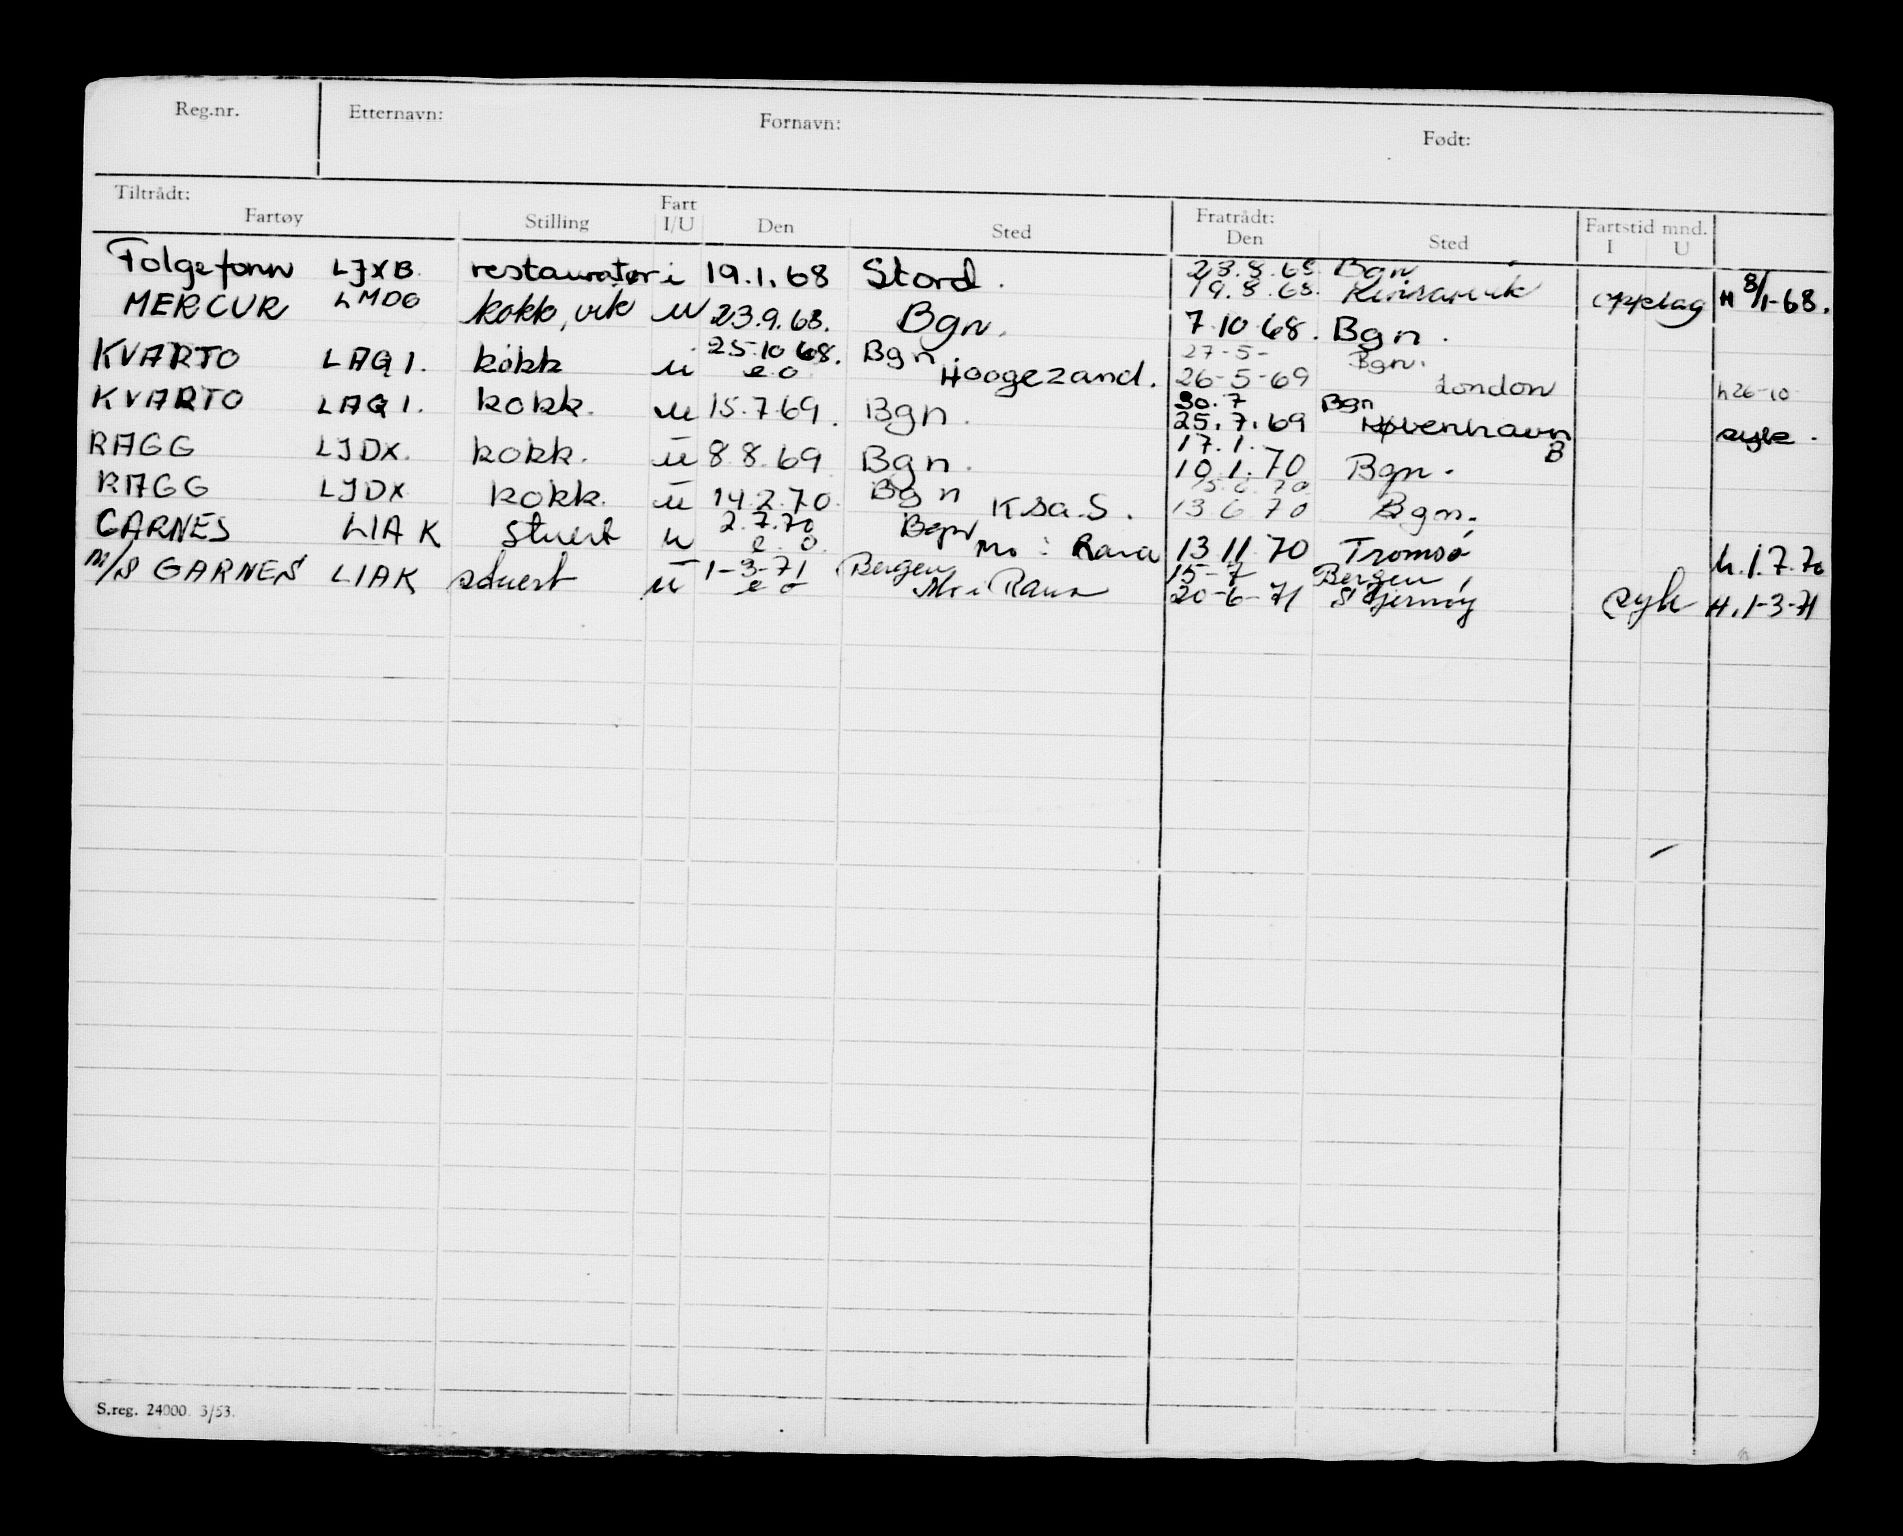 Reg.nr. Etternavn: Fornavn: Født:
Tiltrådt: Fratrådt:
Fartøy Stilling Fart I/U Den Sted Den Sted Fartstid mnd. I U
Folgefonn LJXB. restauratør i 19.1.68 Stord. 23.8.68 Bgn
19.8.68. Kinsarvik opplag H 8/1-68.
MERCUR LMDG kokk, vik u 23.9.68. Bgn. 7.10.68. Bgn.
KVARTO LAQI. kokk u 25.10.68. Bgn 27-5- Bgn.
e.o. Hoogezand. 26-5-69 London h26-10
KVARTO LAQI. kokk. u 15.7.69. Bgn. 30.7 Bgn
25.7.69 København syk.
RAGG LJDX. kokk. u 8.8.69 Bgn. 17.1. B
10.1.70 Bgn.
RAGG LJDX kokk. u 14.2.70. Bgn K.sa.S. 15.6.70
13 6 70 Bgn.
GARNES LIAK Stuert u 2.7.70 Bgn
e.o. Mo i Rana 13 11 70 Tromsø h.1.7.70
M/S GARNES LIAK stuert u 1-3-71 Bergen 15-7 Bergen
e o Mo i Rana 20-6-71 syk H.1-3-71
S.reg. 24000. 3/53.